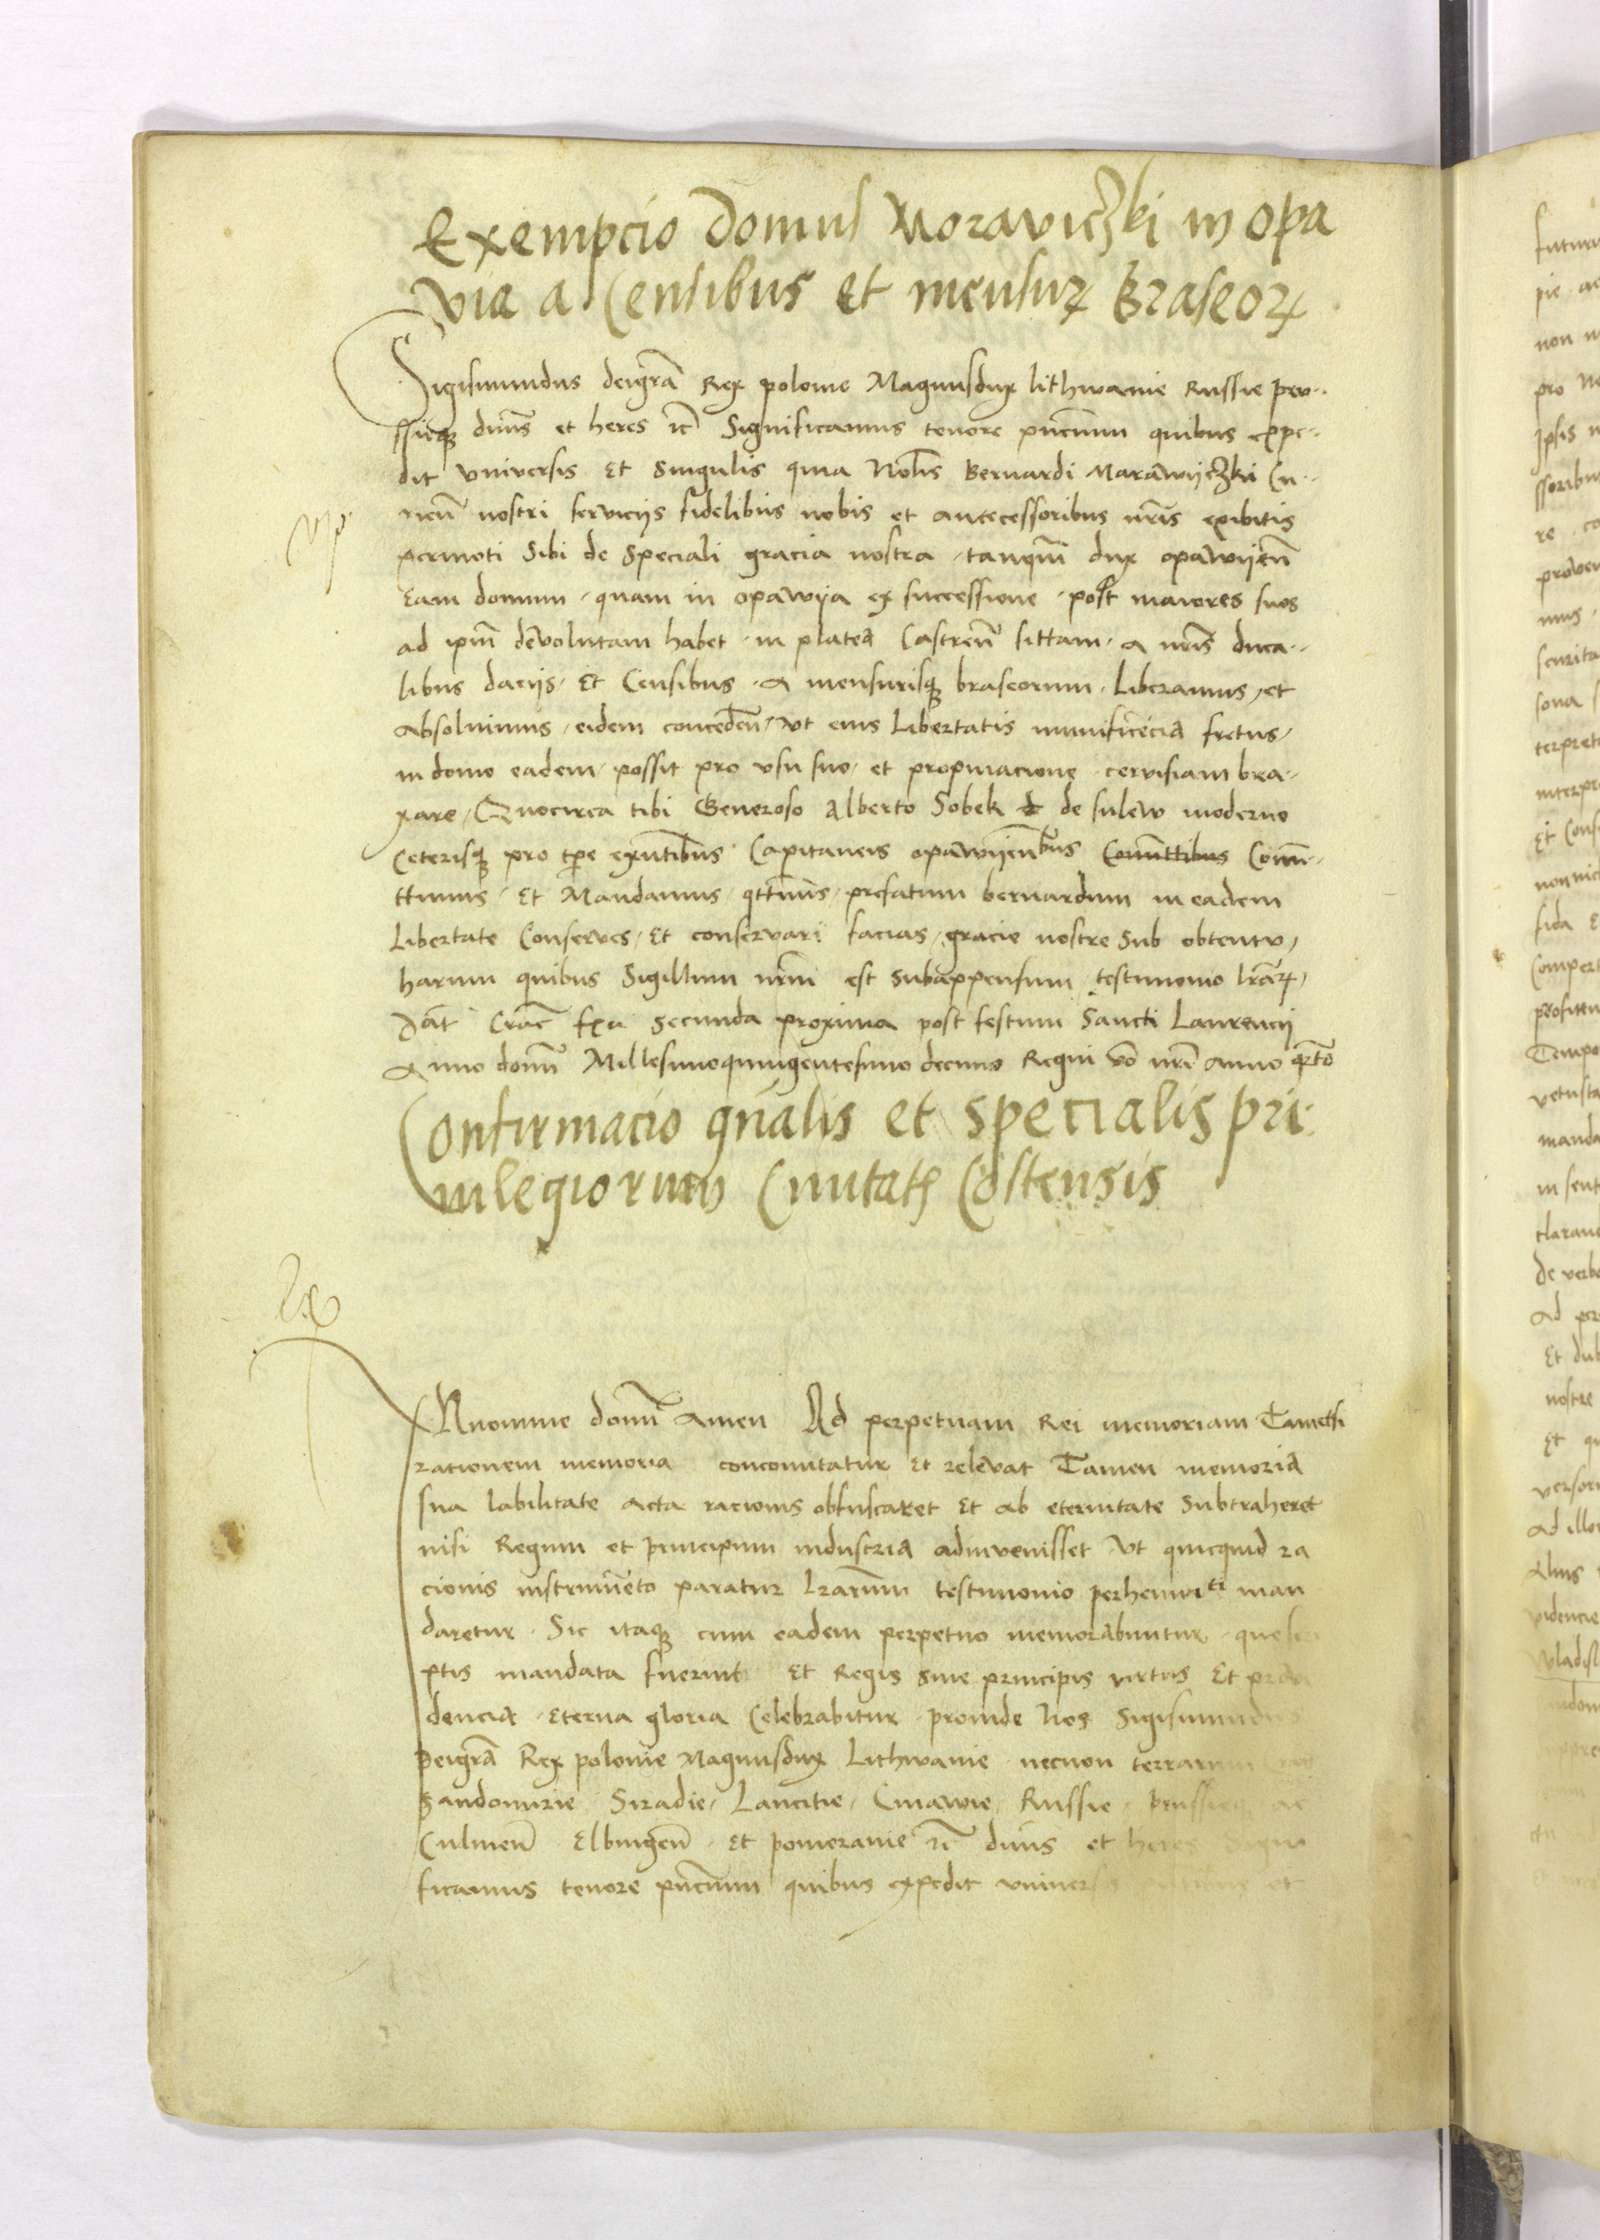 Exempcio Domus Moraviczki in opa
via a Censibus et mensurꝝ Braseoꝝ
Sigismundus deigrā Rex polonie Magnusdux lithwanie Russie prv
ssieqꝫ dn̄us et heres ꝛc̄ Significamus tenore pn̄cium quibus expe
dit vniversis Et Singulis quia Nobīs Bernardi Marawijczki Cu
rien̄ nostri servicijs fidelibus nobis et antecessoribus nr̄is exibitis
permoti Sibi de Speciali gracia nostra tanqum̄ dux opawijen̄
Eam domum quam in opawija ex successione post maiores suos
ad ipm̄ devolutam habet in platea Castren̄ sittam a nr̄is duca
libus dacijs Et Censibus a mensurisqꝫ braseorum Liberamus et
Absolvimus eidem conceden̄ Vt eius Libertatis munificēcia fretus
in domo eadem possit pro vsu suo et propinacione cervisiam bra
xare Quocirca tibi Generoso Alberto Sobek de sulew moderno
Ceterisqꝫ pro tp̄e exn̄tibus Capitaneis opawijen̄bus Com̄ittibus Com̄i
ttimus Et Mandamus qtn̄us prefatum bernardum in eadem
Libertate Conserves Et conservari facias gracie nostre Sub obtentu
harum quibus Sigillum nr̄m est Subappensum testimonio lr̄aꝝ
Dat̄ Crac̄ fr̄ia Secunda proxima post festum Sancti Laurencij
Anno domī Millesimoquingentesimo decimo Regni vō nr̄i anno qr̄to
Confirmacio gn̄alis et specialis pri
vilegiorum Civitatꝭ Costensis
In nomine domī Amen Ad perpetuam Rei memoriam Tametsi
rationem memoria concomitatur Et relevat Tamen memoria
sua labilitate acta racionis obfuscaret Et ab eternitate Subtraheret
nisi Regum et principum industria adinvenisset Vt quicquid ra
cionis instrumēto paratur lr̄arum testimonio perhenniter man
daretur Sic itaqꝫ cum eadem perpetuo memorabuntur que scri
ptis mandata fuerint Et Regis sive principis virtus Et prov
dencia Eterna gloria Celebrabitur proinde Nos Sigismundus
Deigrā Rex polonie Magnusdux Lithwanie necnon terrarum
Sandomirie Siradie Lancitie Cuiawie Russie prussieqꝫ ac
Culmen̄ Elbingen̄ Et pomeranie ꝛc̄ dn̄us et heres Signi
ficamus tenore pn̄cium quibus expedit vniversis et